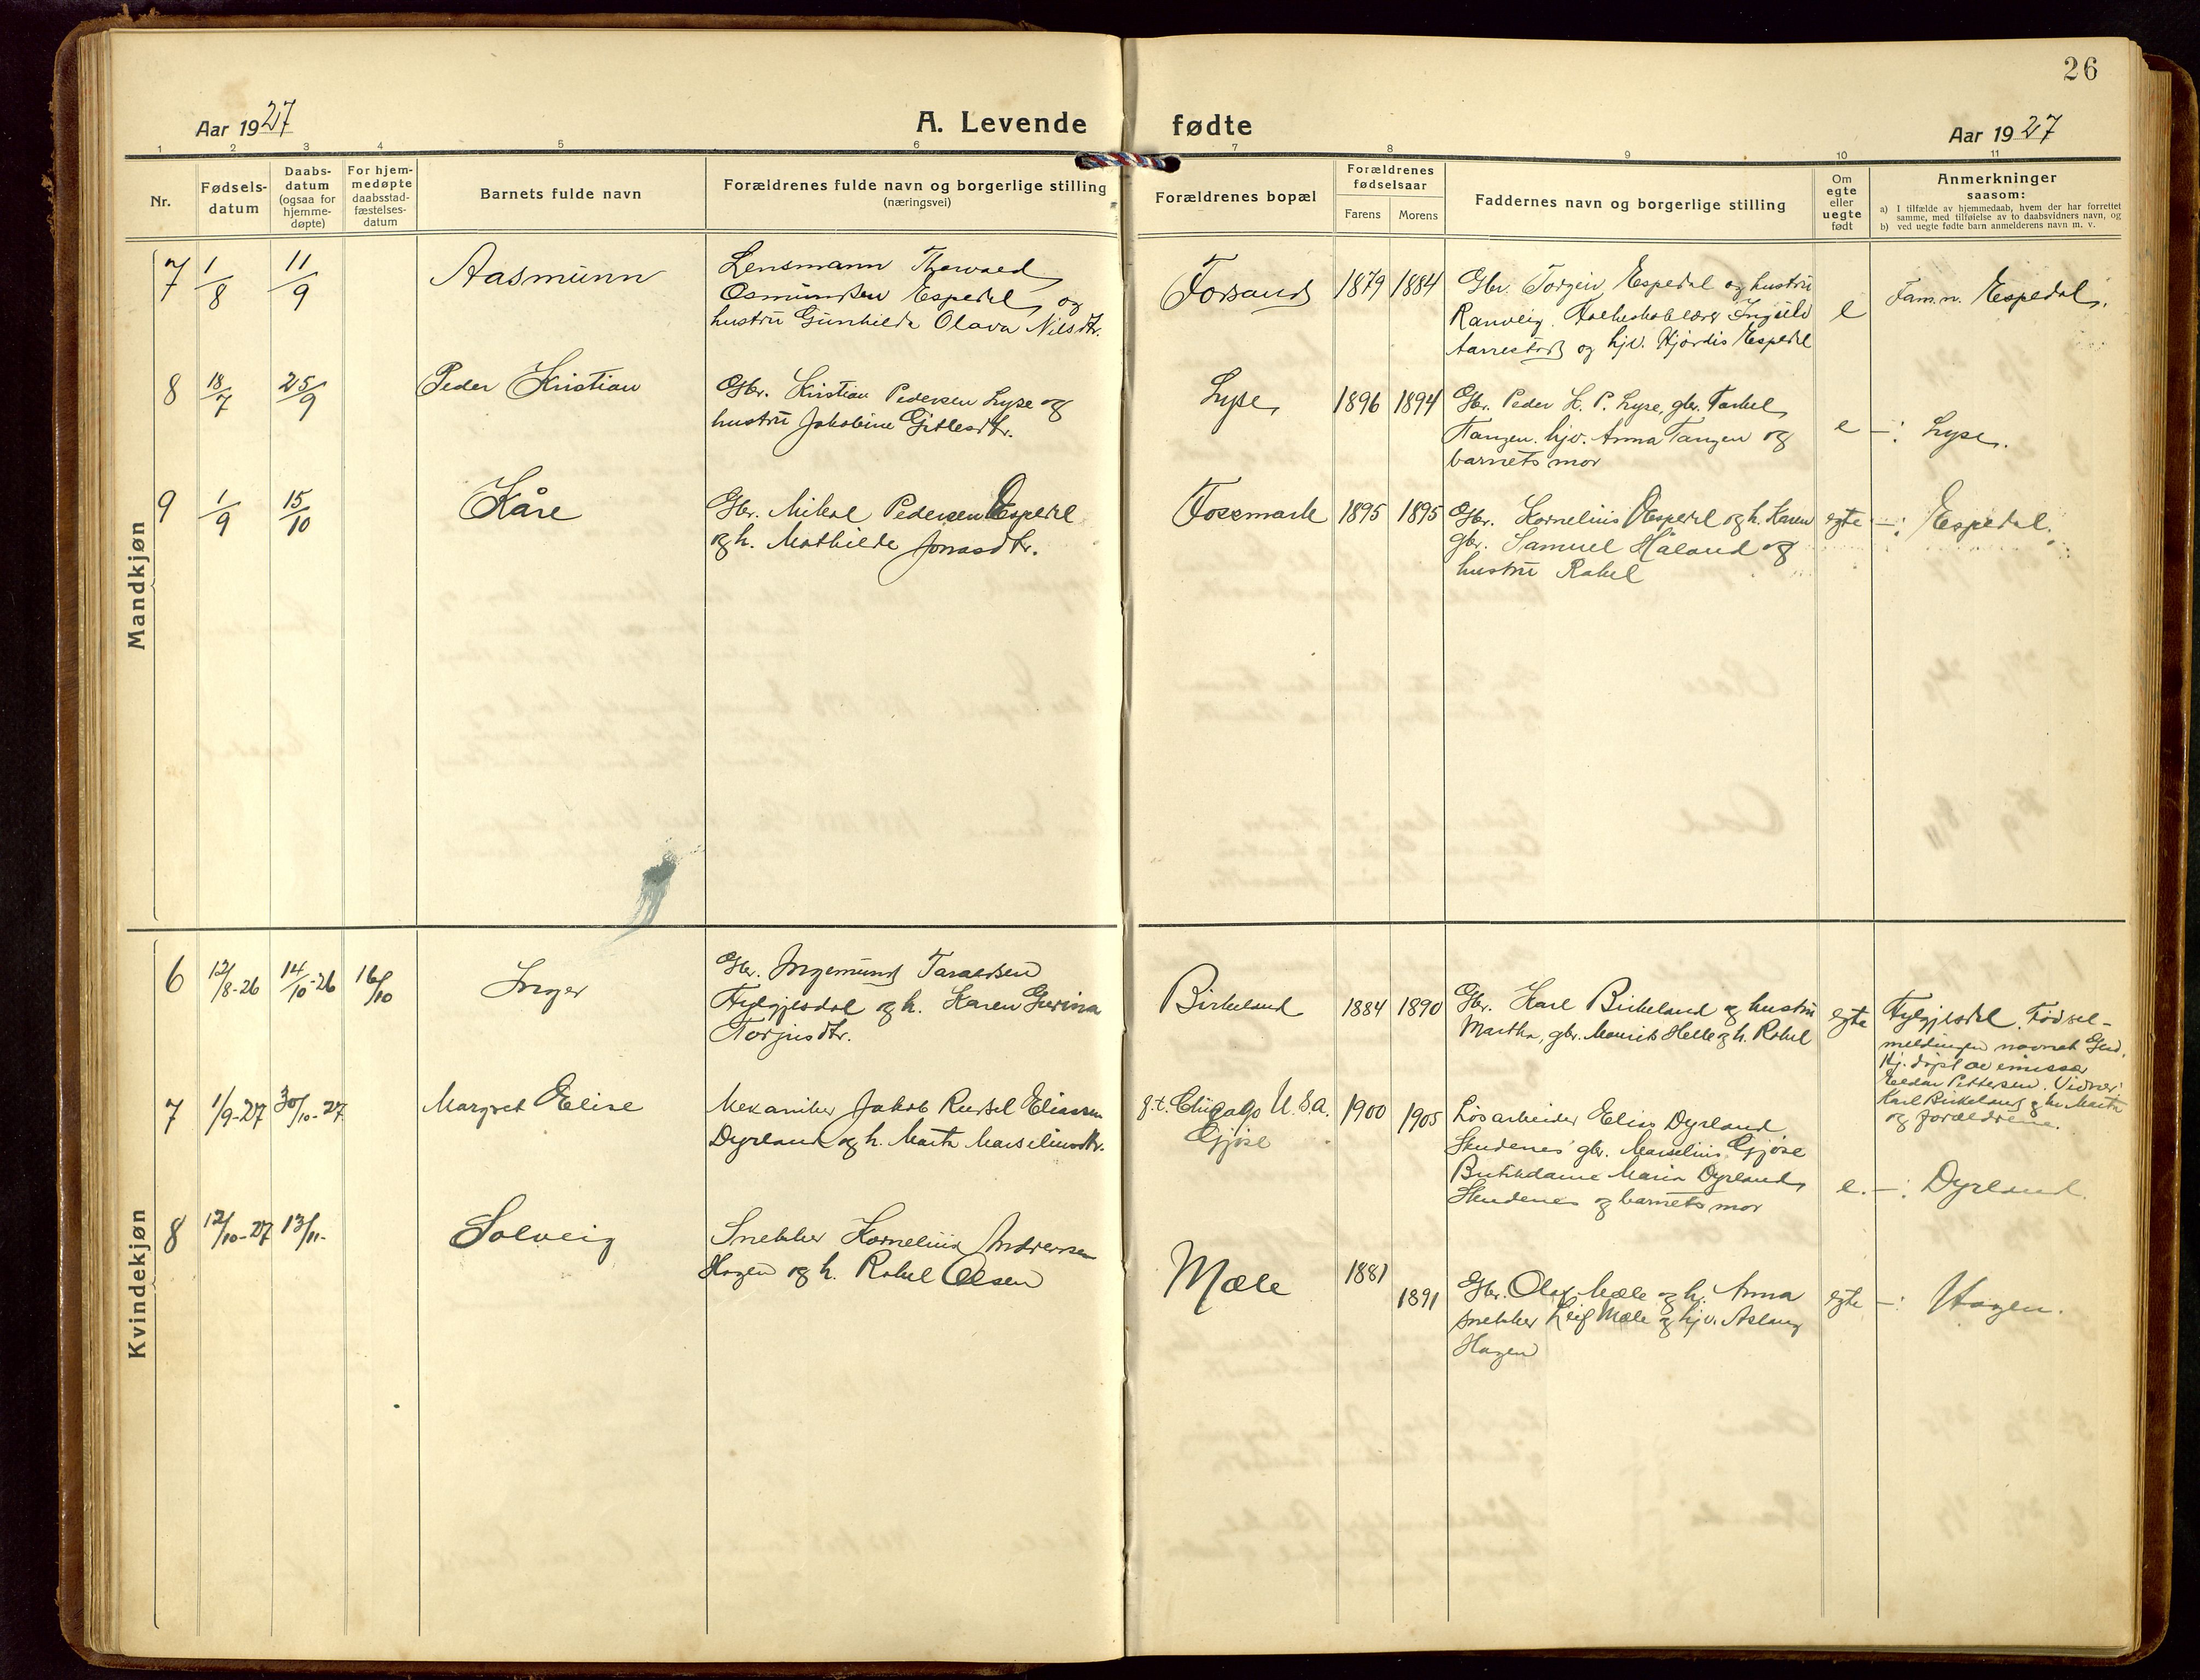 26
Aar 1927
A. Levende fødte
Aar 1927
1 2 3 4 5 6 7 8 9 10 11
Nr.
Fødsels-
datum
Daabs-
datum
(ogsaa for
hjemme-
døpte)
For hjem-
medøpte
daabsstad-
fæstelses-
datum
Barnets fulde navn
Forældrenes fulde navn og borgerlige stilling
(næringsvei)
Forældrenes bopæl
Forældrenes
fødselsaar
Farens Morens
Faddernes navn og borgerlige stilling
Om
egte
eller
uegte
født
Anmerkninger
saasom:
a) I tilfælde av hjemmedaab, hvem der har forrettet
samme, med tilføielse av to daabsvidners navn, og
b) ved uegte fødte barn anmelderens navn m. v.
Mandkjøn
7 1/8 11/9 Aasmunn
Lensmann Thorvald
Osmundsen Espedal og
hustru Gunhilde Olava Nilsdtr.
Forsand 1879 1884
Gbr. Torgeir Espedal og hustru
Ranveig. Folkeskolelærer Ingulv
Aarrestad og hjv. Hjørdis Espedal
e Fam.n. Espedal.
8 18/7 25/9 Peder Kristian
Gbr. Kristian Pedersen Lyse og
hustru Jakobine Gitlesdtr.
Lyse 1896 1894
Gbr. Peder K. P. Lyse, gbr. Torkel
Tangen. hjv. Anna Tangen og
barnets mor
e —: Lyse.
9 1/9 15/10 Kåre
Gbr. Mikal Pedersen Espedal
og h. Mathilde Jonasdtr.
Fossmark 1895 1895
Gbr. Kornelius Espedal og h. Karen
gbr. Samuel Håland og
hustru Rakel
egte —: Espedal.
Kvindekjøn
6 12/8-26 14/10-26 16/10 Inger
Gbr. Ingemund Taraldsen
Fylgjesdal og h. Karen Gurina
Torjusdtr.
Birkeland 1884 1890
Gbr. Karl Birkeland og hustru
Martha, gbr. Maurits Helle og h. Rakel
egte Fylgjesdal. Fødsel-
meldingen navnet Gud.
Hj. døpt av emissær
Peder Pettersen. Vidner:
Karl Birkeland og hu Marta
og forældrene.
7 1/9-27 30/10-27 Margret Elise
Mekaniker Jakob Eliassen
Dyrland og h. Marta Marseliusdtr.
g.t. Chicago U.S.a.
Gjøse
1900 1905
Løsarbeider Elias Dyrland
Skudenes gbr. Marselius Gjøse
Butikdame Maria Dyrland
Skudenes og barnets mor
e. —: Dyrland.
8 12/10-27 13/11- Solveig
Snekker Kornelius Andreassen
Hagen og h. Rakel Olsen
Mæle 1881 1891
Gbr. Olaf Mæle og h. Anna
snekker Leif Mæle og hjv. Aslaug
Hagen
egte —: Hagen.